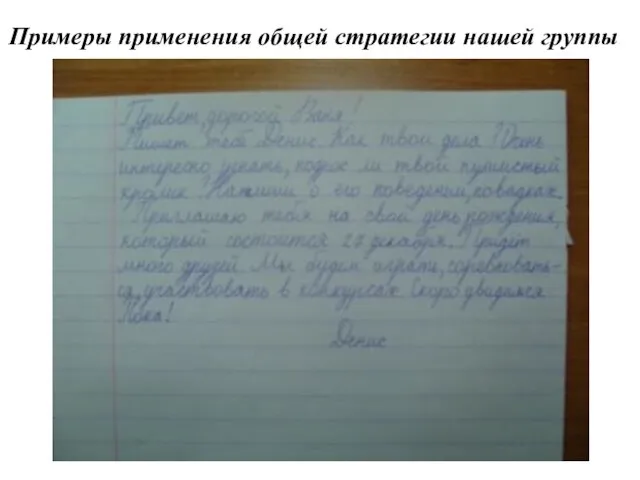 Примеры применения общей стратегии нашей группы
Привет, дорогой Ваня!
Пишет тебе Денис. Как твои дела? Очень
интересно узнать, подрос ли твой пушистый
кролик. Напиши о его поведении, повадках.
Приглашаю тебя на свой день рождения,
который состоится 27 декабря. Придет
много друзей. Мы будем играть, соревновать-
ся, участвовать в конкурсах. Скоро увидимся
Пока!
Денис